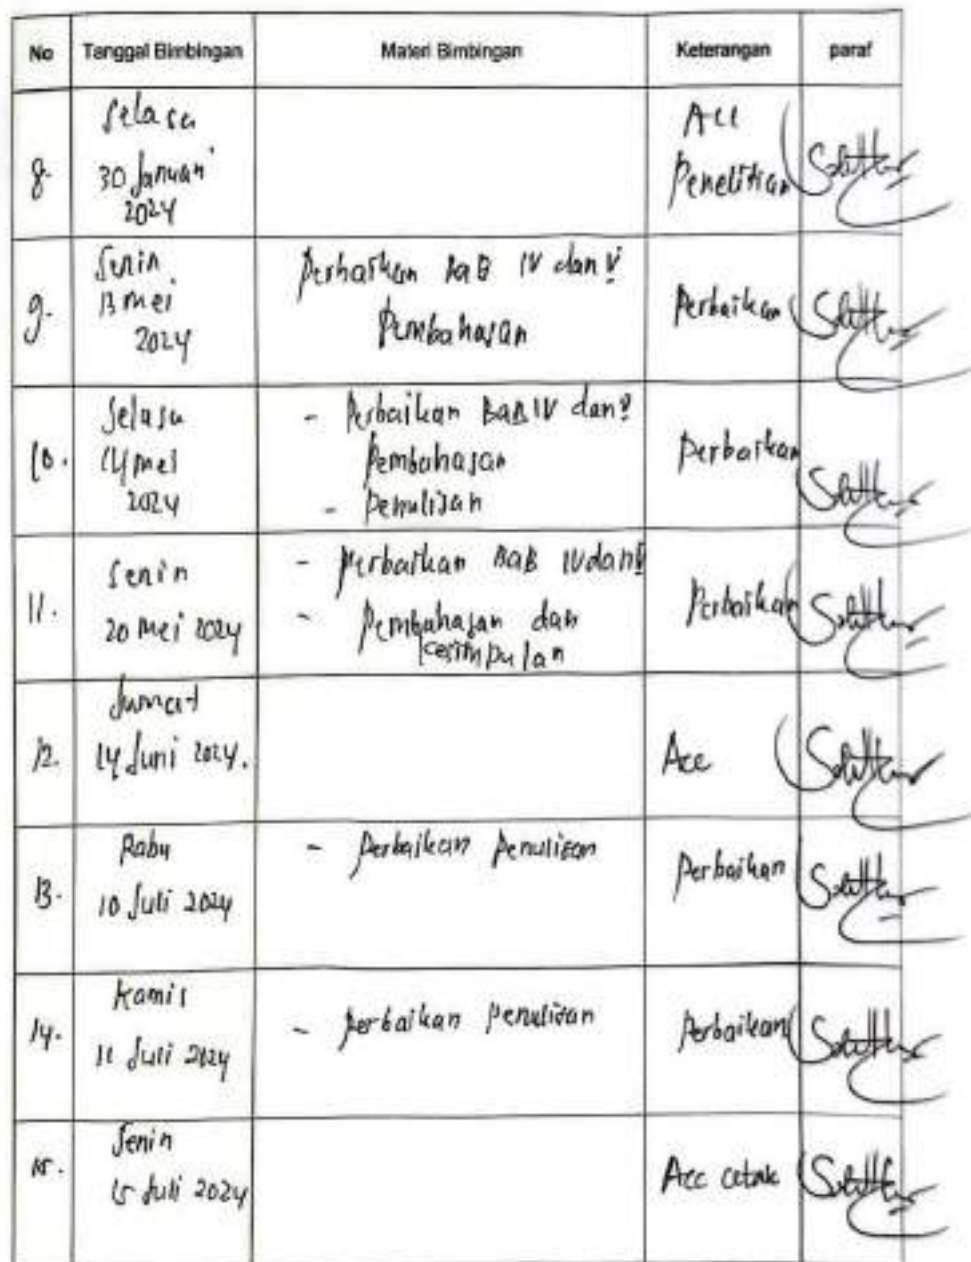 No Tanggal Bimbingan Materi Bimbingan Keterangan paraf
8. Selasa 30 Januari 2024 Acc Penelitian
9. Senin 13 mei 2024 Perbaikan BaB IV dan V Pembahasan Perbaikan
10. Selasa 14 mei 2024 - Perbaikan BaB IV dan V Pembahasan - Penulisan Perbaikan
11. Senin 20 Mei 2024 - Perbaikan BaB IV dan V - Pembahasan dan kesimpulan Perbaikan
12. Jumat 14 Juni 2024. Acc
13. Rabu 10 Juli 2024 - Perbaikan Penulisan Perbaikan
14. Kamis 11 Juli 2024 - Perbaikan Penulisan Perbaikan
15. Senin 15 Juli 2024 Acc cetak